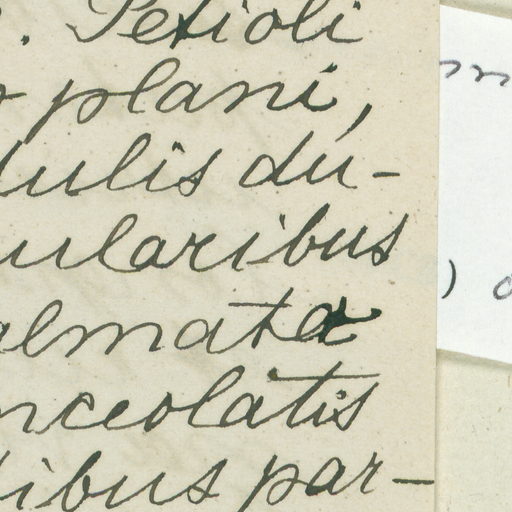 . Petioli
plani,
dulis du-
ularibus
almata
nceolatis
ibus par-